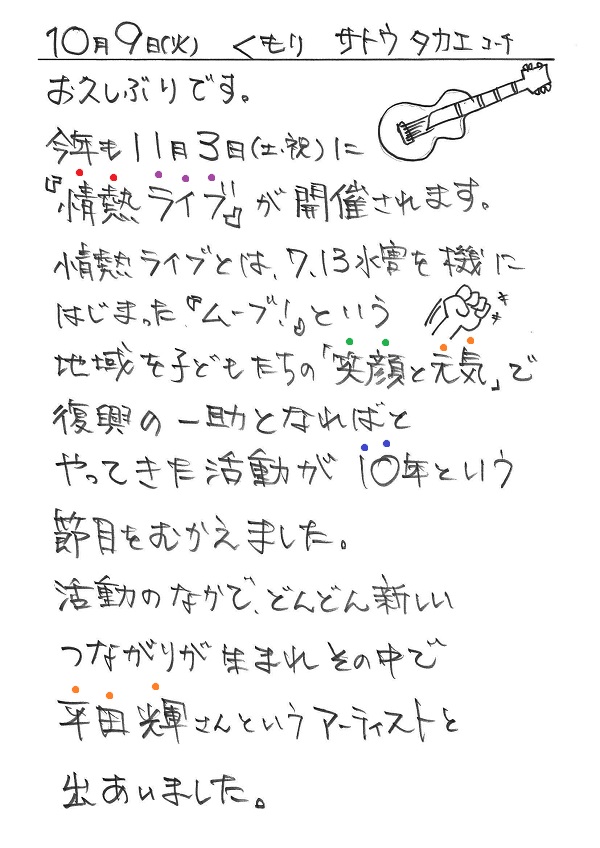 10月9日(火) くもり サトウタカエ コーチ
お久しぶりです。
今年も11月3日(土・祝)に
『情熱ライブ』が開催されます。
情熱ライブとは、7、13水害を機に
はじまった『ムーブ!』という
地域を子どもたちの「笑顔と元気」で
復興の一助となればと
やってきた活動が10年という
節目をむかえました。
活動のなかで、どんどん新しい
つながりが生まれその中で
平田輝さんというアーティストと
出あいました。